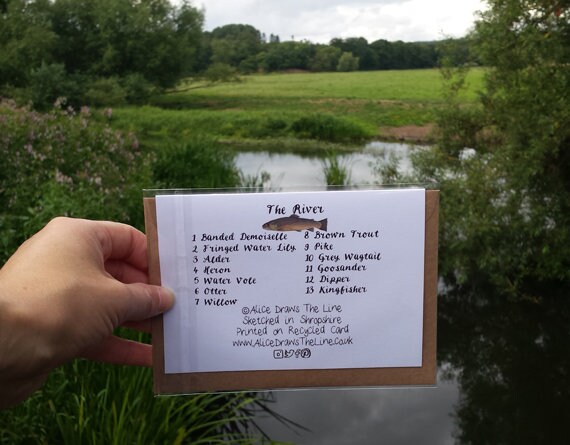 The River
1 Banded Demoiselle
2 Fringed Water Lily
3 Alder
4 Heron
5 Water Vole
6 Otter
7 Willow
8 Brown Trout
9 Pike
10 Grey Wagtail
11 Goosander
12 Dipper
13 Kingfisher
©Alice Draws The Line
Sketched in Shropshire
Printed on Recycled Card
www.AliceDrawsTheLine.co.uk